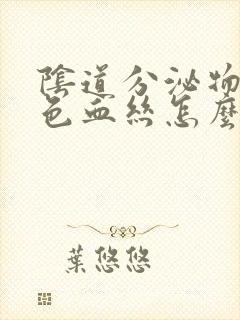 陰道分泌物
色血絲怎麼
葉悠悠